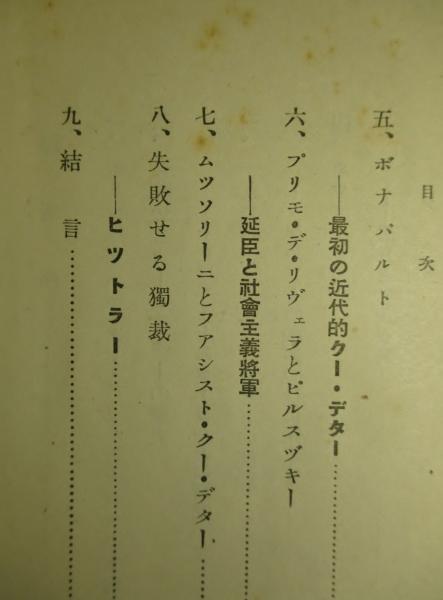 目次
五、ボナパルト
──最初の近代的クー・デター………
六、プリモ・デ・リヴェラとピルスヅキー
──延臣と社會主義將軍………
七、ムツソリーニとフアシスト・クー・デター………
八、失敗せる獨裁
──ヒツトラー………
九、結言………